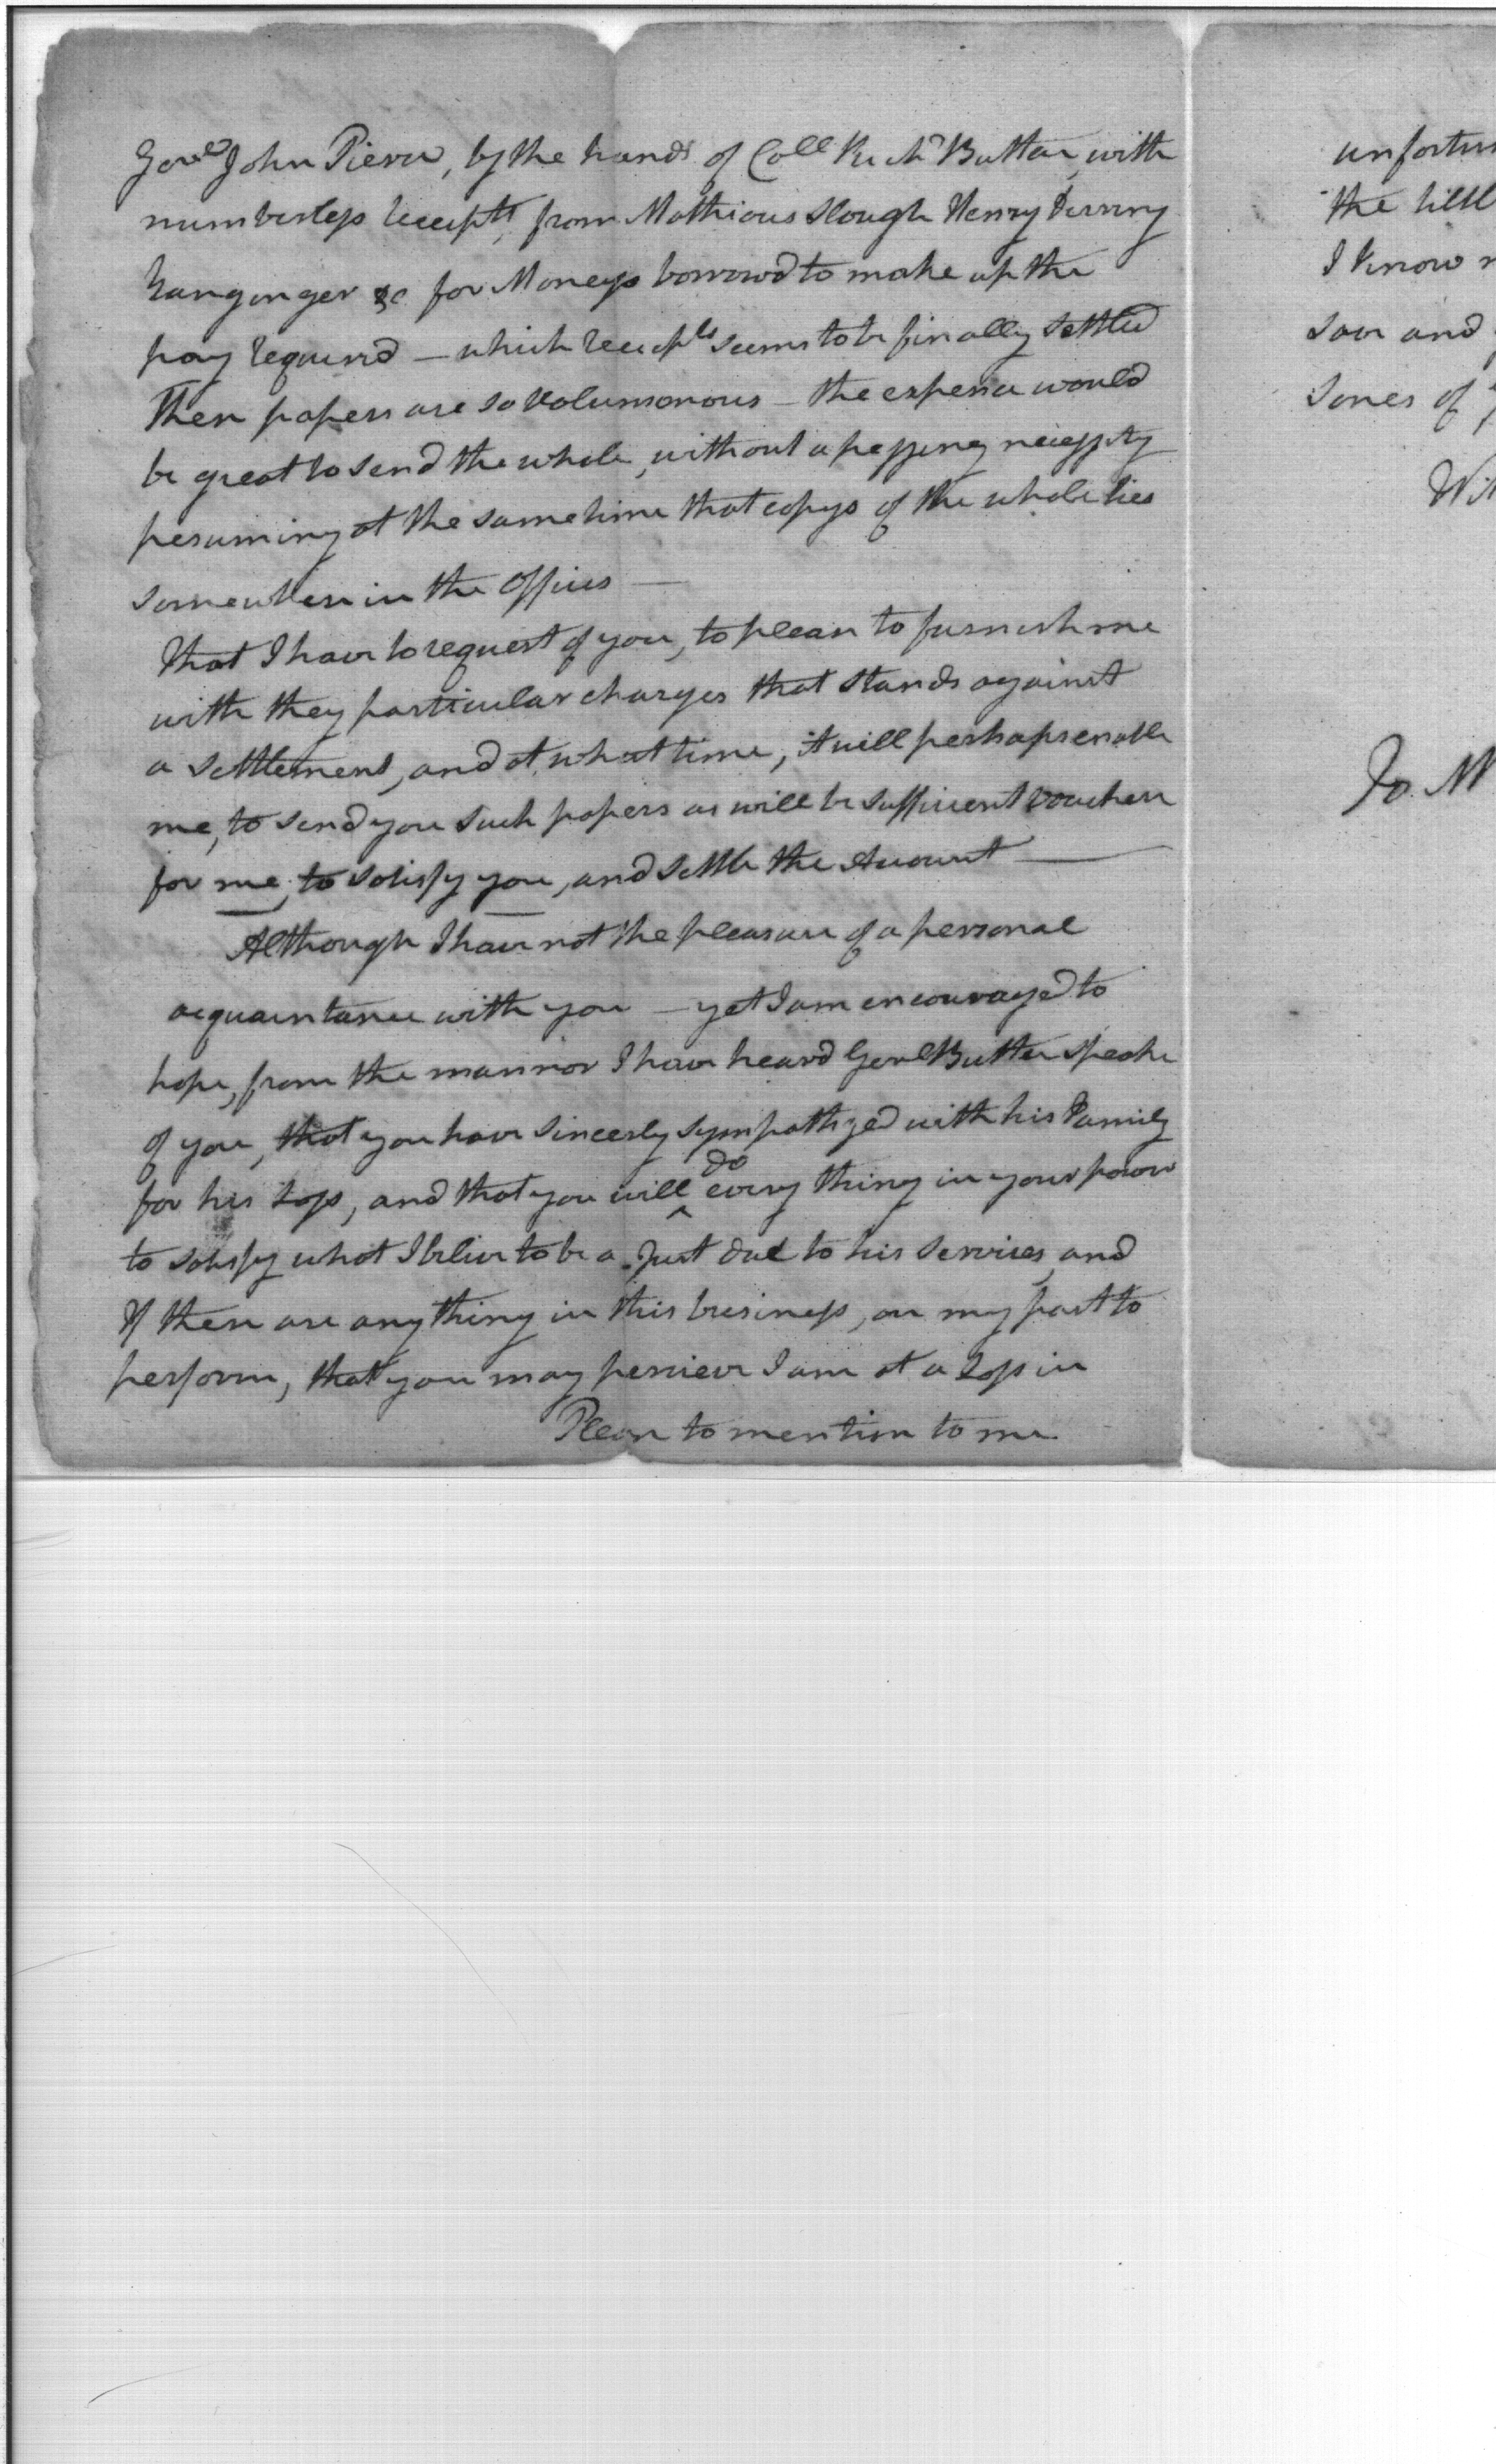 John Pierce, by the hands of Coll Richd Buttler, with
numberless receipts, from Mathious Slough Henry
&c for Moneys borrowd to make up the
pay required — which receipts seems to be finally settled
These papers are so volumonous — the expence would
be great to send the whole, without a pressing necessity
presuming at the same time that copys of the whole lies
somewhere in the offices —
That I have to request of you, to please to furnish me
with they particular charges that stands against
a settlement, and at what time, it will perhaps enable
me, to send you such papers as will be sufficient vouchers
for me, to satisfy you, and settle the Account —
Although I have not the pleasure of a personal
acquaintance with you — yet I am encouraged to
hope, from the mannor I have heard Genl Buttler speake
of you, that you have sincerly sympathized with his Family
for his loss, and that you will do every thing in your power
to satisfy what I believe to be a Just due to his services, and
If there are any thing in this business, on my part to
perform, that you may percieve I am at a loss in
Please to mention to me
unfortun
the littl
I know
save and
sones of
Wi
To M